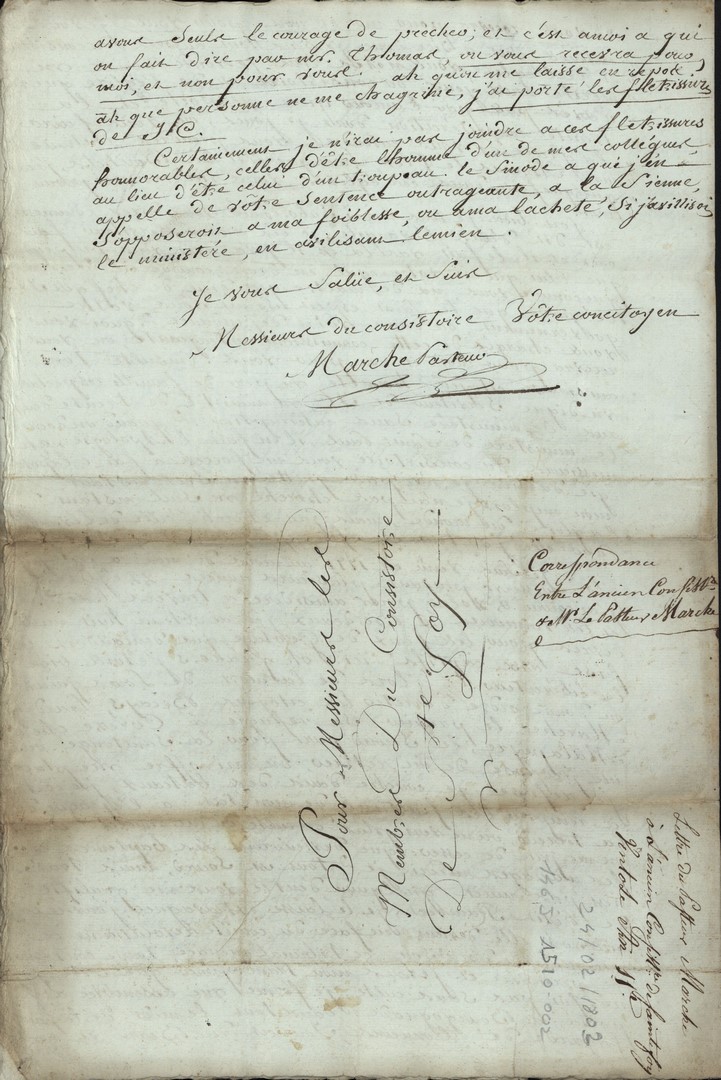 avous seuls le courage de precher, et c'est amoi a qui
on fait dire par mr. Thomas, on vous recevra pour
moi, et non pour vous. ah qu'on me laisse en repos.
ah que personne ne me chagrine, j'ai porté les fletrissures
de J.C.
Certainement je n'irai pas joindre a ces fletrissures
honnorables, celles d'être lhomme d'un de mes collégues,
au lieu d'être celui d'un troupeau. le Sinode a qui j'en
appelle de vôtre Sentence outrageante, a la Sienne,
S'opposeroit a ma foiblesse, ou ama lacheté, Si j'avillissois
le ministére, en avilisant lemien.
Je vous Salüe, et Suis
Messieurs du consistoire Vôtre concitoyen
Marche Pasteur
Correspondance
Entre L'ancien Consist.re
& Mr. Le Pasteur Marche
Pour Messieurs les
Membres Du Consistoire
De Ste Foy
Lettre du Pasteur Marche
à L'ancien Consist.re de Sainte foy
Ventose
24/02/1802
1510-002